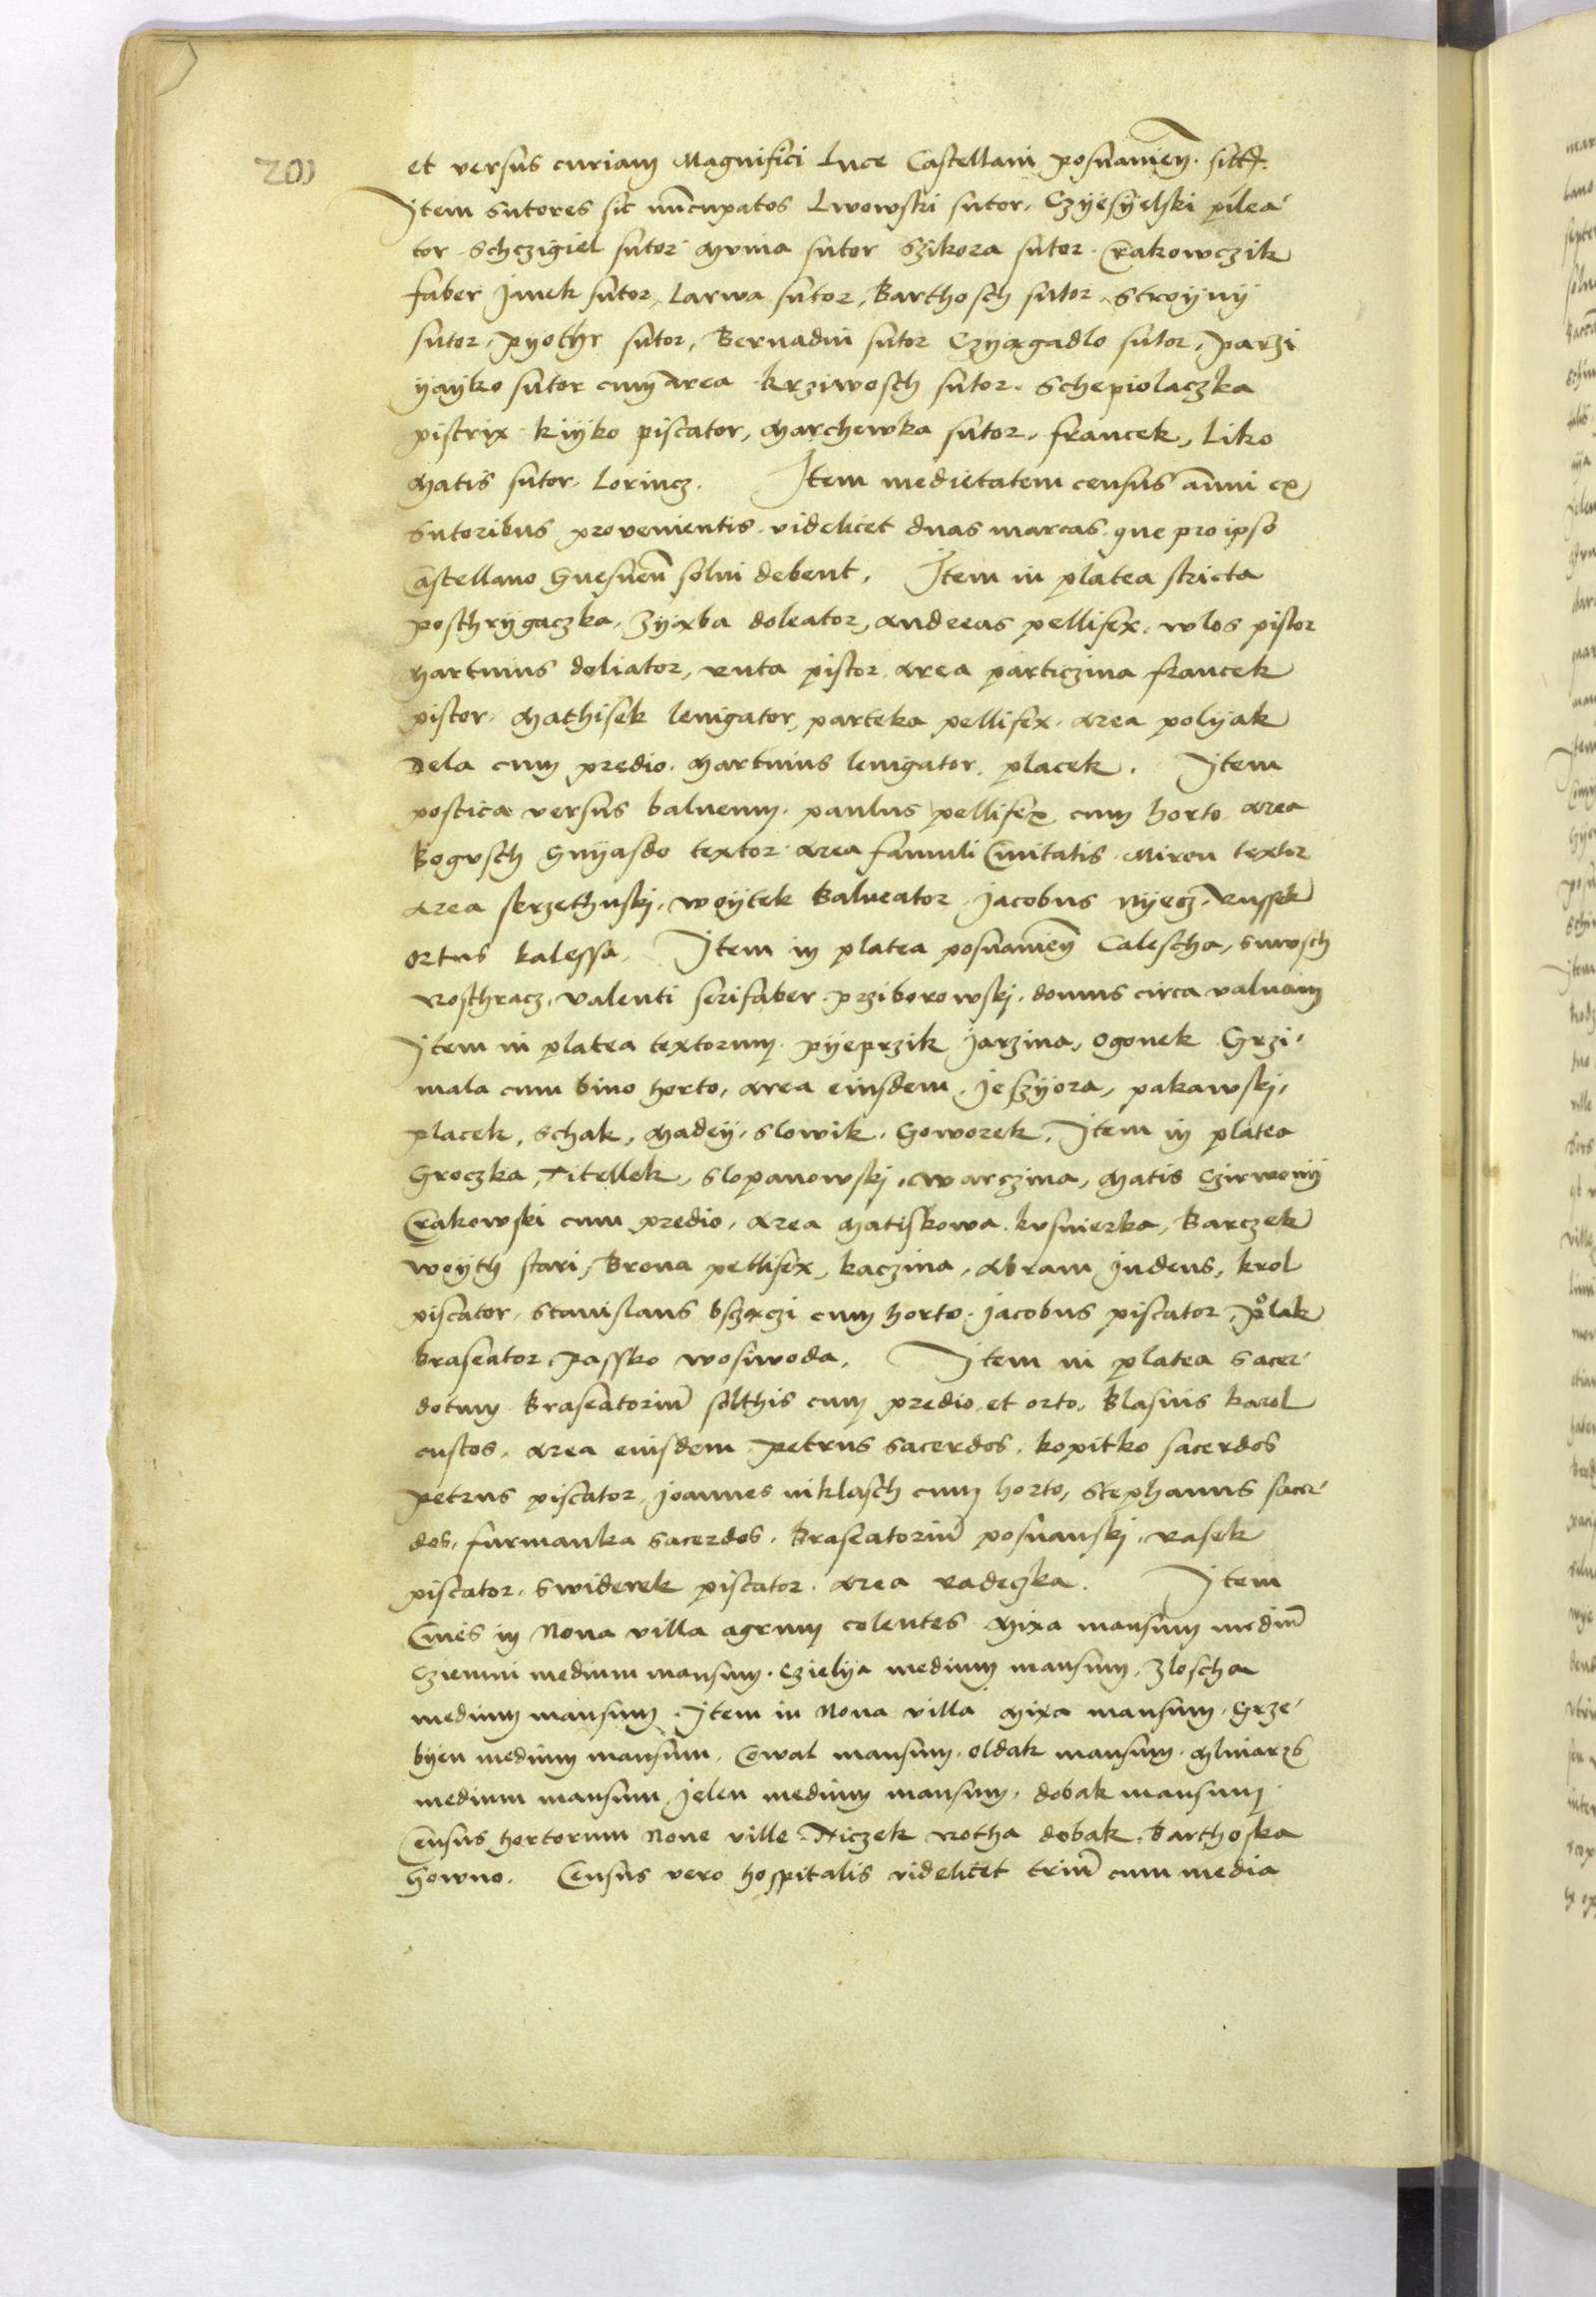 200
et versus curiam Magnifici Luce Castellani posnanien. sitt.
Item sutores sic nuncupatos Lwowski sutor, Czyesyelski pilea
tor. Schczigiel sutor Mvnia sutor Szikora sutor. Crakowczik
faber Janek sutor, Larwa sutor, Barthosch sutor. Stroyny
sutor, Pyothr sutor, Bernadin sutor Czyągadlo sutor, Parzi
yayko sutor cum area Krziwosch sutor. Schepiolaczka
pistrix. Kiyko piscator, Marchewka sutor, francek, Liko
Matis sutor, Lorincz. Item medietatem census anni ex
sutoribus provenientis. videlicet duas marcas que pro ipso
Castellano Gnesnen solui debent. Item in platea stricta
Poschrygaczka, Zyąba doleator, Andreas pellifex, wlos pistor
Martinus doliator, ruta pistor, area particzina francek
pistor, Mathisek lenigator, parteka pellifex. area polyak
Dela cum predio. Martinus lenigator, placek. Item
postica versus balneum. paulus pellifex cum horto area
Bogusch Gnyasdo textor. area famuli Ciuitatis. Miron textor
area skrzethuskj, woytek Balneator, Jacobus nyecz, russek
ortus kalessa. Item in platea posnanien Calescha, suwosch
Roschracz, valenti serifaber. Prziborowskj, domus circa valuam
Item in platea textorum. pyeprzik Jarzina, Ogonek Grzi-
mala cum bino horto, area eiusdem, Jeszyora, pakawskj,
placek, schak, Madey, slowik, Goworek, Item in platea
Groczka, Titellek, slopanowskj, warczina, Matis Czirwony
Crakowski cum predio, area Matiskowa, kusnierka, Barczek
woyth stari, Brona pellifex, kaczina, Abram Judeus, krol
piscator, Stanislaus bszączi cum horto. Jacobus piscator, Polak
braseator, Passko wosnwoda. Item in platea sacer
dotum Braseatorium solthis cum predio et orto, Blasius karol
custos, area eiusdem petrus sacerdos, kopitko sacerdos
petrus piscator, Joannes niklasch cum horto, Stephanus sacer
dos, furmanka sacerdos. Braseatorium posnanskj, rasek
piscator, Swiderek piscator. area radeczka. Item
Ciues in Noua villa agrum colentes Mixa mansum medium
Cziemni medium mansum. Czielya medium mansum. Zloscha
medium mansum. Item in Noua villa Mixa mansum. Grze-
byen medium mansum, Cowal mansum. oldak mansum. Mlinarzs
medium mansum. Jelen medium mansum, dobak mansum
Census hortorum Noue ville. Niczek rotha dobak, Barthoska
Gowno. Census vero hospitalis videlicet trium cum media